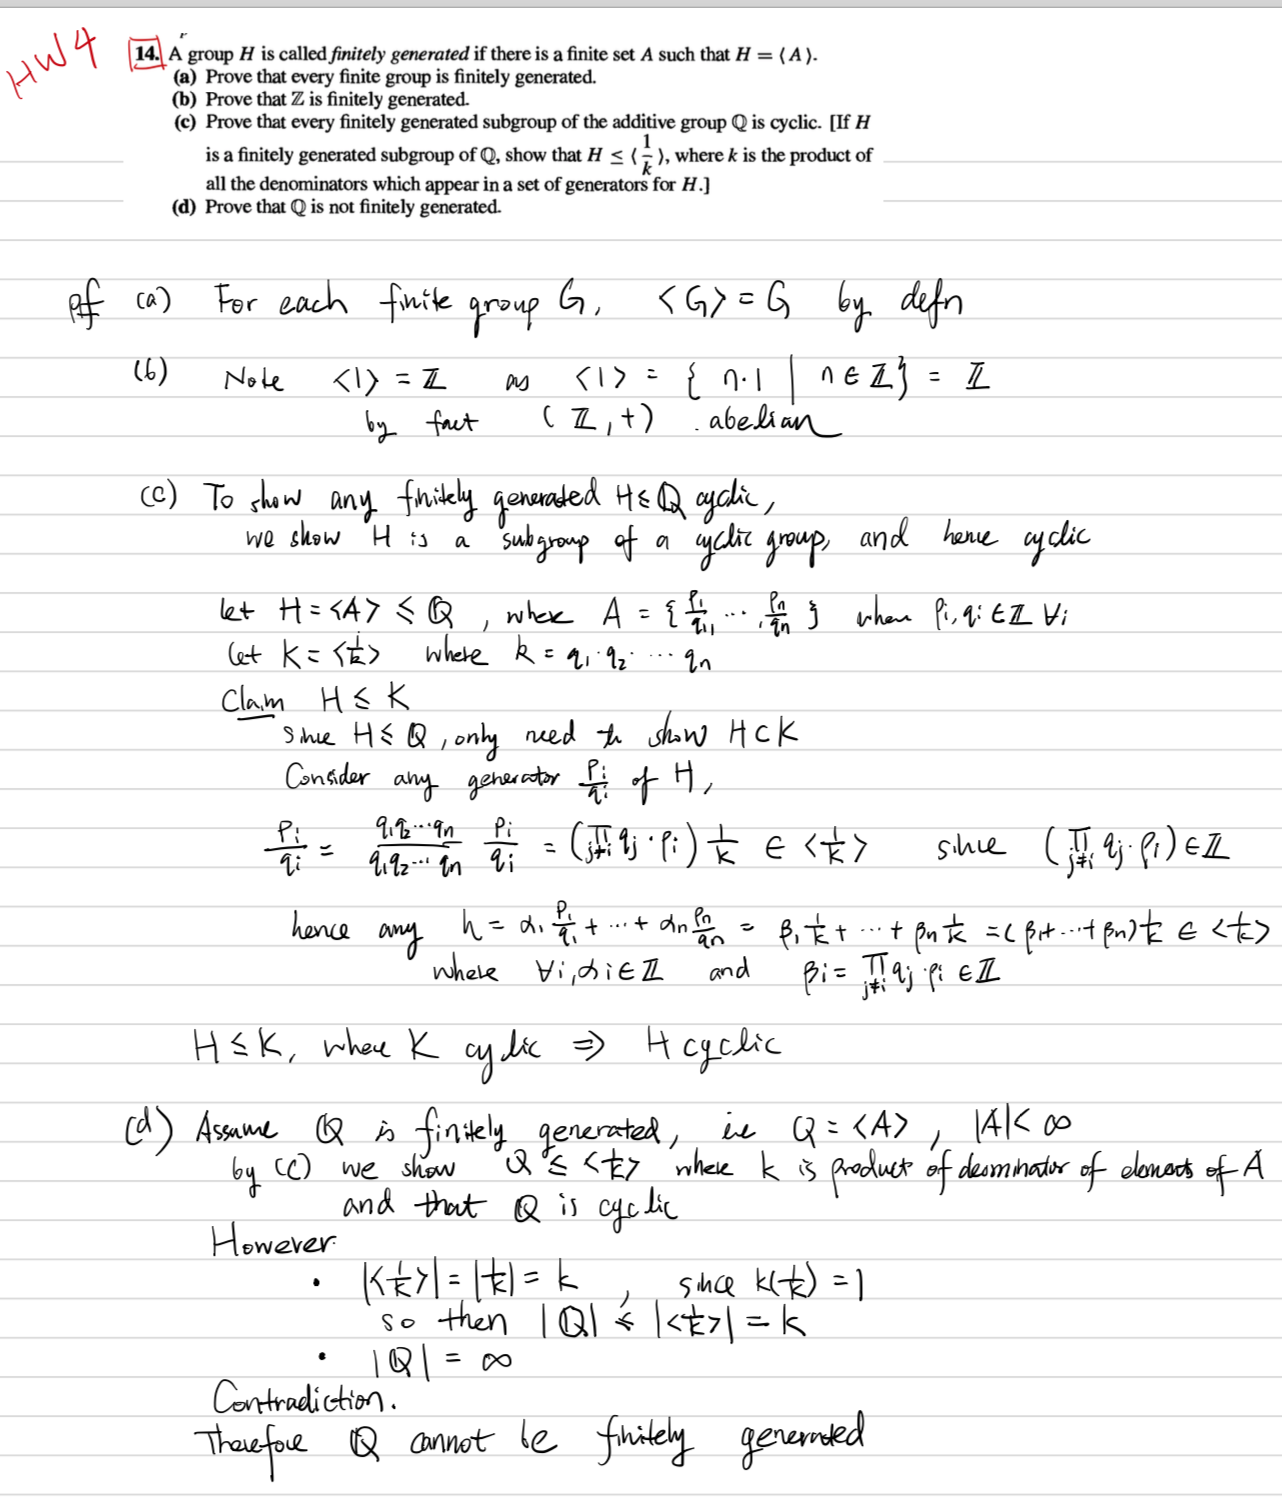 HW4
14. A group H is called finitely generated if there is a finite set A such that H = ⟨A⟩.
(a) Prove that every finite group is finitely generated.
(b) Prove that ℤ is finitely generated.
(c) Prove that every finitely generated subgroup of the additive group ℚ is cyclic. [If H
is a finitely generated subgroup of ℚ, show that H ≤ ⟨1/k⟩, where k is the product of
all the denominators which appear in a set of generators for H.]
(d) Prove that ℚ is not finitely generated.
pf (a) For each finite group G, <G> = G by defn
(b) Note <1> = ℤ as <1> = { n·1 | n ∈ ℤ} = ℤ
by fact (ℤ,+) abelian
(c) To show any finitely generated H≤ℚ cyclic,
we show H is a subgroup of a cyclic group, and hence cyclic
let H = <A> ≤ ℚ, where A = { p₁/q₁, ... , pₙ/qₙ } where pᵢ, qᵢ ∈ ℤ ∀i
let K = <1/k> where k = q₁·q₂· ... qₙ
Claim H ≤ K
Since H ≤ ℚ, only need to show H ⊂ K
Consider any generator pᵢ/qᵢ of H,
pᵢ/qᵢ = q₁q₂...qₙ/q₁q₂...qₙ pᵢ/qᵢ = (∏_{j≠i} qⱼ·pᵢ) 1/k ∈ <1/k> since (∏_{j≠i} qⱼ·pᵢ) ∈ ℤ
hence any h = α₁ p₁/q₁ + ... + αₙ pₙ/qₙ = β₁ 1/k + ... + βₙ 1/k = (β₁+...+βₙ) 1/k ∈ <1/k>
where ∀i, αᵢ ∈ ℤ and βᵢ = ∏_{j≠i} qⱼ·pᵢ ∈ ℤ
H ≤ K, where K cyclic ⇒ H cyclic
(d) Assume ℚ is finitely generated, ie ℚ = <A>, |A| < ∞
by (c) we show ℚ ≤ <1/k> where k is product of deominator of elements of A
and that ℚ is cyclic
However
• |<1/k>| = |1/k| = k, since k(1/k) = 1
so then |ℚ| ≤ |<1/k>| = k
• |ℚ| = ∞
Contradiction.
Therefore ℚ cannot be finitely generated